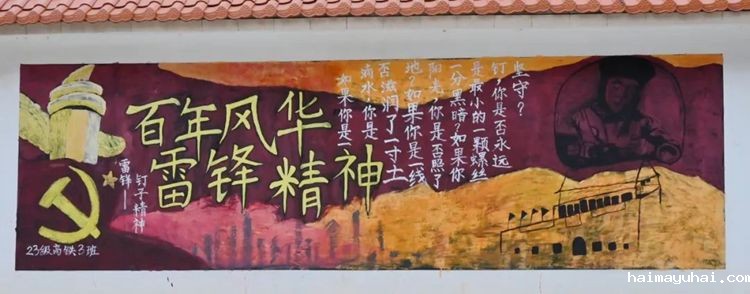 百年风华
雷锋精神
如果你是一
滴水,你是
否滋润了一寸土
地?如果你是一线
阳光,你是否照了
一分黑暗?如果你
是最小的一颗螺丝
钉,你是否永远
坚守?
雷锋——
钉子精神
23级高铁3班
haimayuhai.com